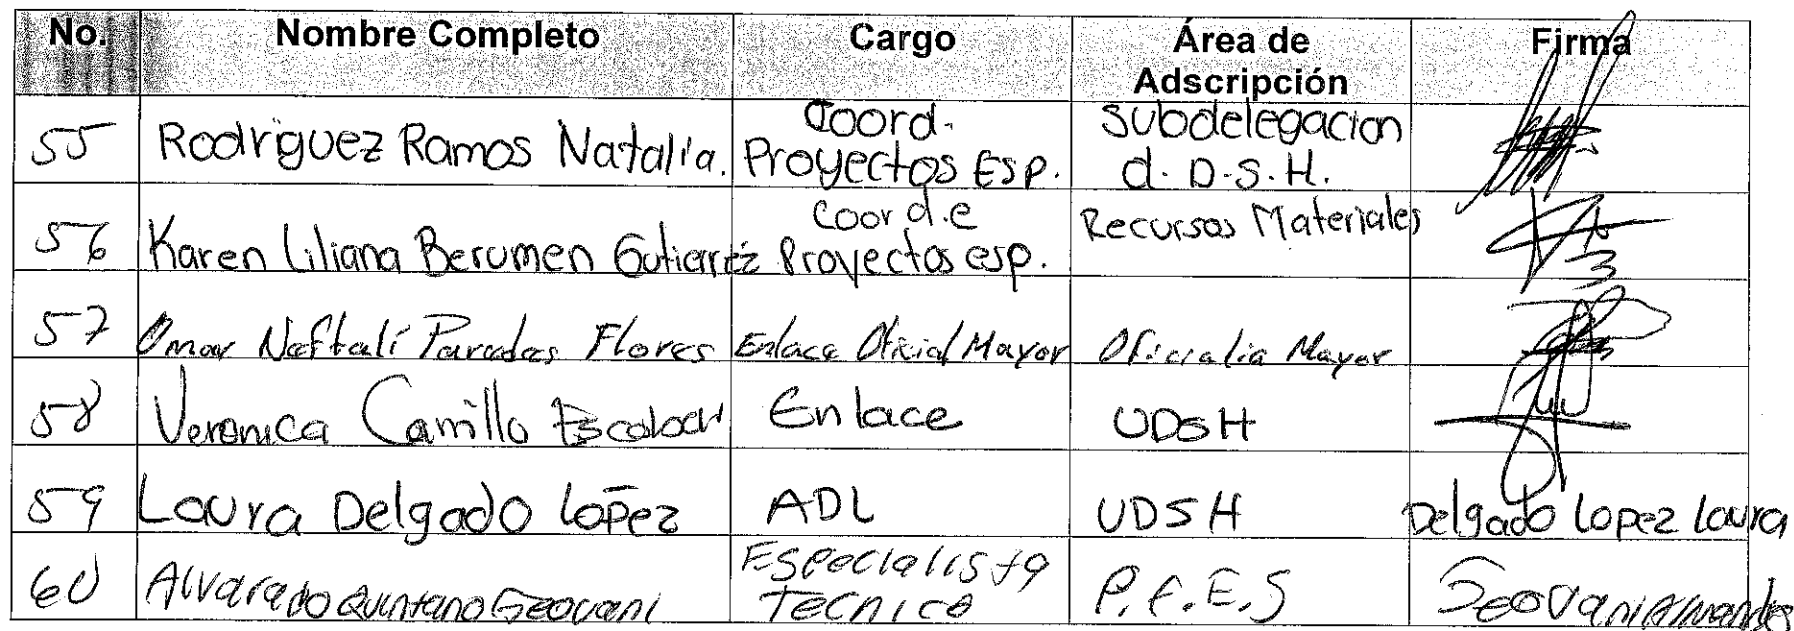 No. Nombre Completo Cargo Área de Adscripción Firma
55 Rodriguez Ramos Natalia. Coord. Proyectos Esp. Subdelegacion d. D.S.H.
56 Karen Liliana Berumen Gutierréz Coord.e Proyectos esp. Recursos Materiales
57 Omar Neftalí Paredes Flores Enlace Oficial Mayor Oficialia Mayor
58 Veronica Carrillo Escobar Enlace UDSH
59 Laura Delgado López ADL UDSH Delgado Lopez Laura
60 Alvarado Quintano Geovani Especialista Tecnico Geovani